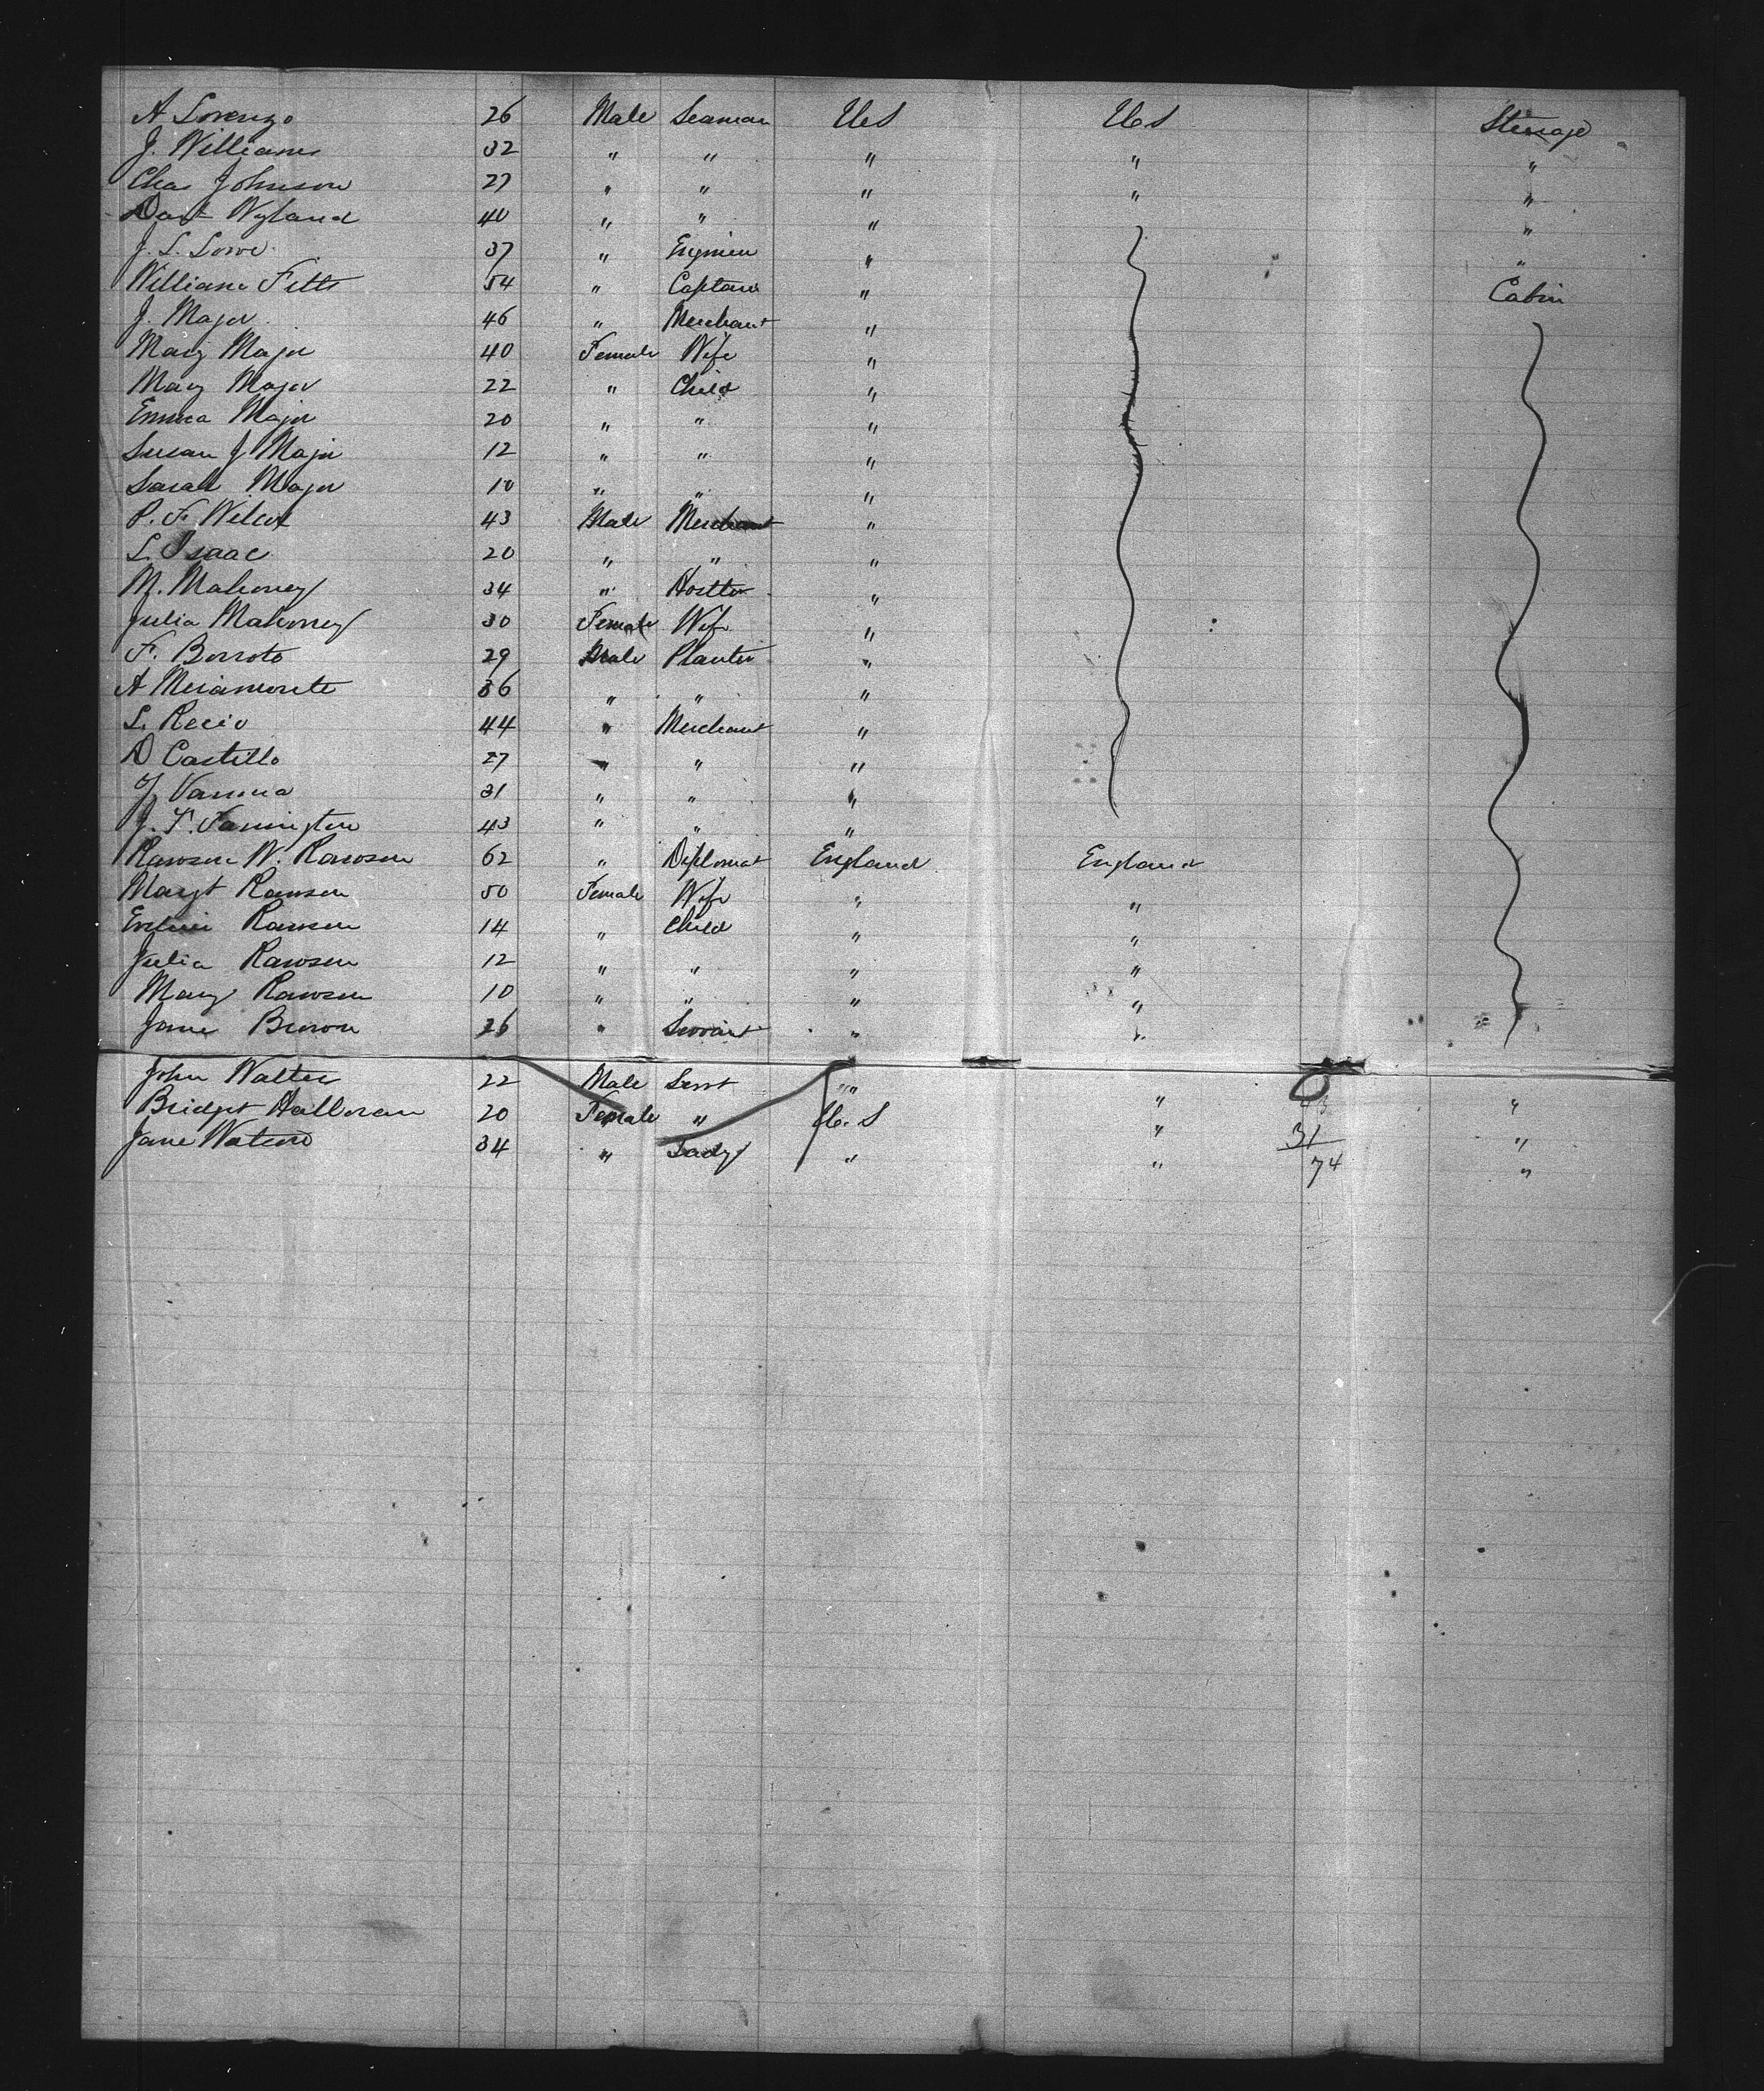 A Lorenzo 26 Male Seaman U S U S Steerage
J. Williams 32 " " " " "
Chas Johnson 27 " " " " "
Dart Wyland 40 " " " "
J. L. Lowe 37 " Engineer " "
William Fitts 54 " Captain " Cabin
J. Major 46 " Merchant "
Mary Major 40 Female Wife "
Mary Major 22 " Child "
Emma Major 20 " " "
Susan J Major 12 " " "
Sarah Major 10 " " "
P. F. Wilcox 43 Male Merchant "
L. Isaac 20 " " "
M. Mahoney 34 " Hostler "
Julia Mahoney 30 Female Wife "
F. Borroto 29 Male Planter "
A Meiamonte 36 " " "
L. Recio 44 " Merchant "
D Castillo 27 " " "
J 31 " " "
J. T. Farrington 43 " " "
Rawson W. Rawson 62 " Diplomat England England
Margt Rawson 50 Female Wife " "
Rawson 14 " Child " "
Julia Rawson 12 " " " "
Mary Rawson 10 " " " "
Jane Brown 26 " Servant " "
John Walter 22 Male Servt " "
Bridget Halloran 20 Female " U. S " 43 "
Jane Waters 34 " Lady " " 31 "
" 74 "